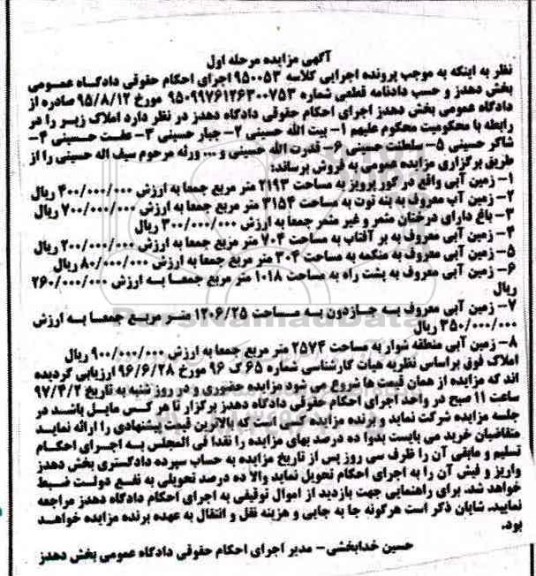 آگهی مزایده مرحله اول
نظر به اینکه به موجب پرونده اجرایی کلاسه ۹۵۰۰۵۳ اجرای احکام حقوقی دادگاه عمومی
بخش دهدز و حسب دادنامه قطعی شماره ۹۵۰۹۹۷۶۱۲۶۳۰۰۷۵۳ مورخ ۹۵/۸/۱۲ صادره از
دادگاه عمومی بخش دهدز اجرای احکام حقوقی دادگاه دهدز در نظر دارد املاک زیر را در
رابطه با محکومیت محکوم علیهم ۱- بیت الله حسینی ۲- جبار حسینی ۳- عفت حسینی ۴-
شاکر حسینی ۵- سلطنت حسینی ۶- قدرت الله حسینی و ... ورثه مرحوم سیف اله حسینی را از
طریق برگزاری مزایده عمومی به فروش برساند:
۱- زمین آبی واقع در گور پرویز به مساحت ۲۱۹۳ متر مربع جمعا به ارزش ۴۰۰/۰۰۰/۰۰۰ ریال
۲- زمین آب معروف به بنه توت به مساحت ۳۱۵۴ متر مربع جمعا به ارزش ۷۰۰/۰۰۰/۰۰۰ ریال
۳- باغ دارای درختان مثمر و غیر مثمر جمعا به ارزش ۳۰۰/۰۰۰/۰۰۰ ریال
۴- زمین آبی معروف به بر آفتاب به مساحت ۷۰۳ متر مربع جمعا به ارزش ۲۰۰/۰۰۰/۰۰۰ ریال
۵- زمین آبی معروف به منگمه به مساحت ۳۰۴ متر مربع جمعا به ارزش ۸۰/۰۰۰/۰۰۰ ریال
۶- زمین آبی معروف به پشت راه به مساحت ۱۰۱۸ متر مربع جمعا به ارزش ۲۶۰/۰۰۰/۰۰۰
ریال
۷- زمین آبی معروف به جازدون به مساحت ۱۲۰۶/۲۵ متر مربع جمعا به ارزش
۳۵۰/۰۰۰/۰۰۰ ریال
۸- زمین آبی منطقه شوار به مساحت ۲۵۷۳ متر مربع جمعا به ارزش ۹۰۰/۰۰۰/۰۰۰ ریال
املاک فوق براساس نظریه هیات کارشناسی شماره ۶۵ ک ۹۶ مورخ ۹۶/۶/۲۸ ارزیابی گردیده
اند که مزایده از همان قیمت ها شروع می شود مزایده حضوری و در روز شنبه به تاریخ ۹۷/۴/۲
ساعت ۱۱ صبح در واحد اجرای احکام حقوقی دادگاه دهدز برگزار تا هر کس مایل باشد در
جلسه مزایده شرکت نماید و برنده مزایده کسی است که بالاترین قیمت پیشنهادی را ارائه نماید
متقاضیان خرید می بایست بدوا ده درصد بهای مزایده را نقدا فی المجلس به اجرای احکام
تسلیم و مابقی آن را ظرف سی روز پس از تاریخ مزایده به حساب سپرده دادگستری بخش دهدز
واریز و فیش آن را به اجرای احکام تحویل نماید والا ده درصد تحویلی به نفع دولت ضبط
خواهد شد. برای راهنمایی جهت بازدید از اموال توقیفی به اجرای احکام دادگاه دهدز مراجعه
نمایید. شایان ذکر است هرگونه جا به جایی و هزینه نقل و انتقال به عهده برنده مزایده خواهد
بود.
حسین خدابخشی- مدیر اجرای احکام حقوقی دادگاه عمومی بخش دهدز
ParsNamadData